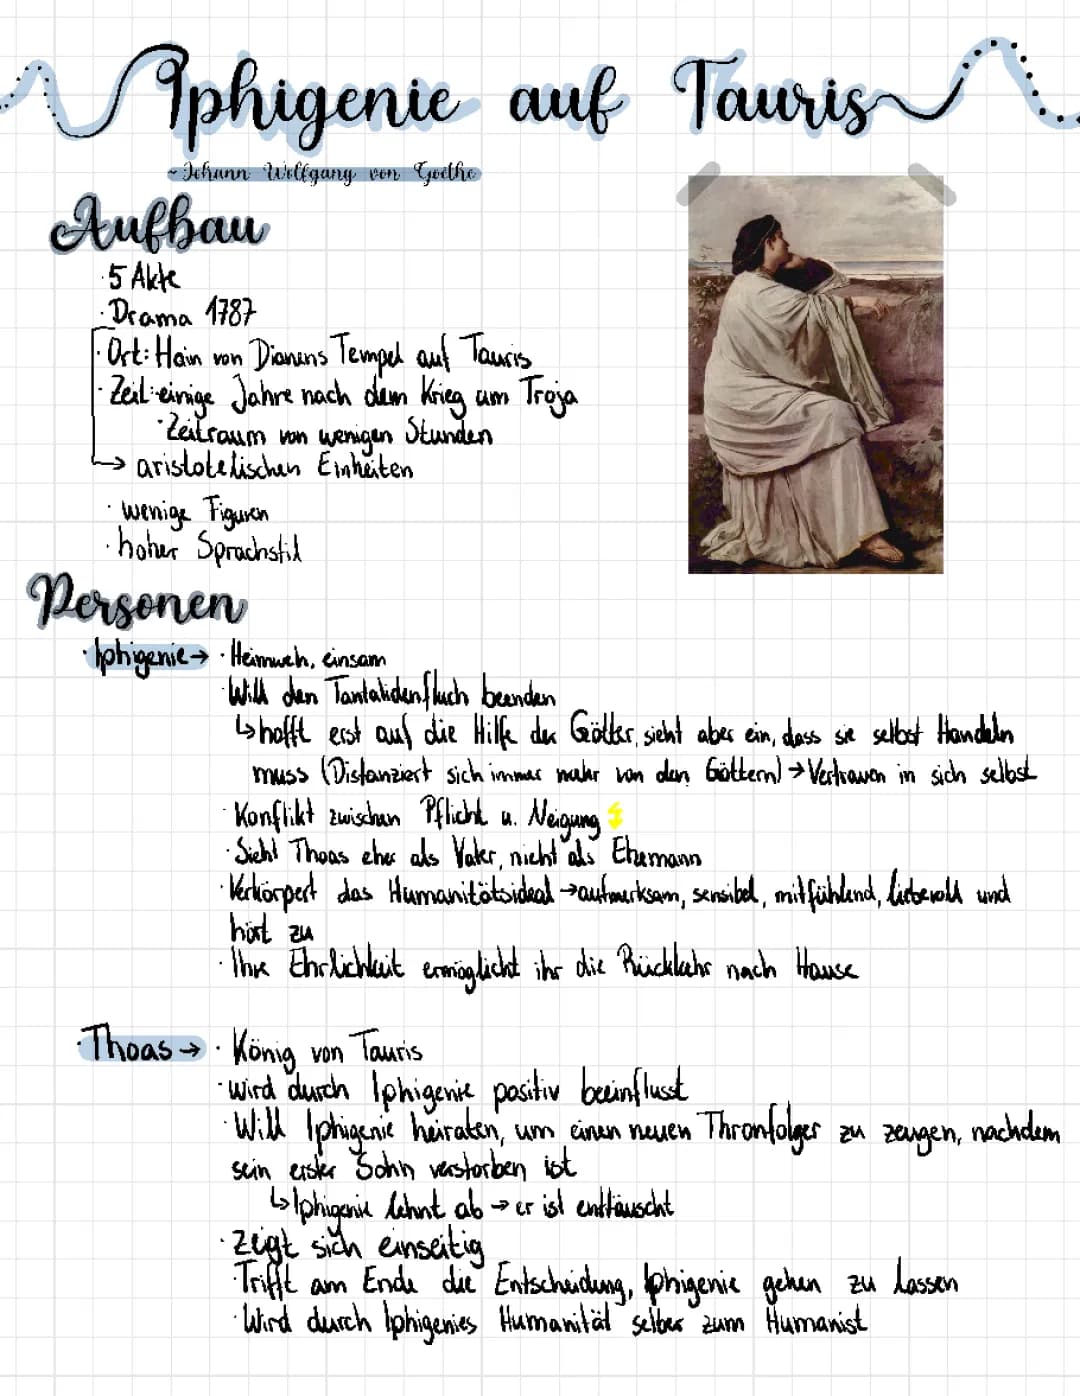 Iphigenie auf Tauris
~ Johann Wolfgang von Goethe
Aufbau
· 5 Akte
· Drama 1787
· Ort: Hain von Dianens Tempel auf Tauris
· Zeit: einige Jahre nach dem Krieg um Troja
· Zeitraum von wenigen Stunden
→ aristotelischen Einheiten
· wenige Figuren
· hoher Sprachstil
Personen
· Iphigenie → · Heimweh, einsam
· Will den Tantalidenfluch beenden
↳ hofft erst auf die Hilfe der Götter, sieht aber ein, dass sie selbst Handeln
muss (Distanziert sich immer mehr von den Göttern) → Vertrauen in sich selbst
· Konflikt zwischen Pflicht u. Neigung
· Sieht Thoas eher als Vater, nicht als Ehemann
· Verkörpert das Humanitätsideal → aufmerksam, sensibel, mitfühlend, liebevoll und
hört zu
· Ihre Ehrlichkeit ermöglicht ihr die Rückkehr nach Hause
· Thoas → · König von Tauris
· wird durch Iphigenie positiv beeinflusst
· Will Iphigenie heiraten, um einen neuen Thronfolger zu zeugen, nachdem
sein erster Sohn verstorben ist
↳ Iphigenie lehnt ab → er ist enttäuscht
· zeigt sich einseitig
· Trifft am Ende die Entscheidung, Iphigenie gehen zu lassen
· Wird durch Iphigenies Humanität selber zum Humanist